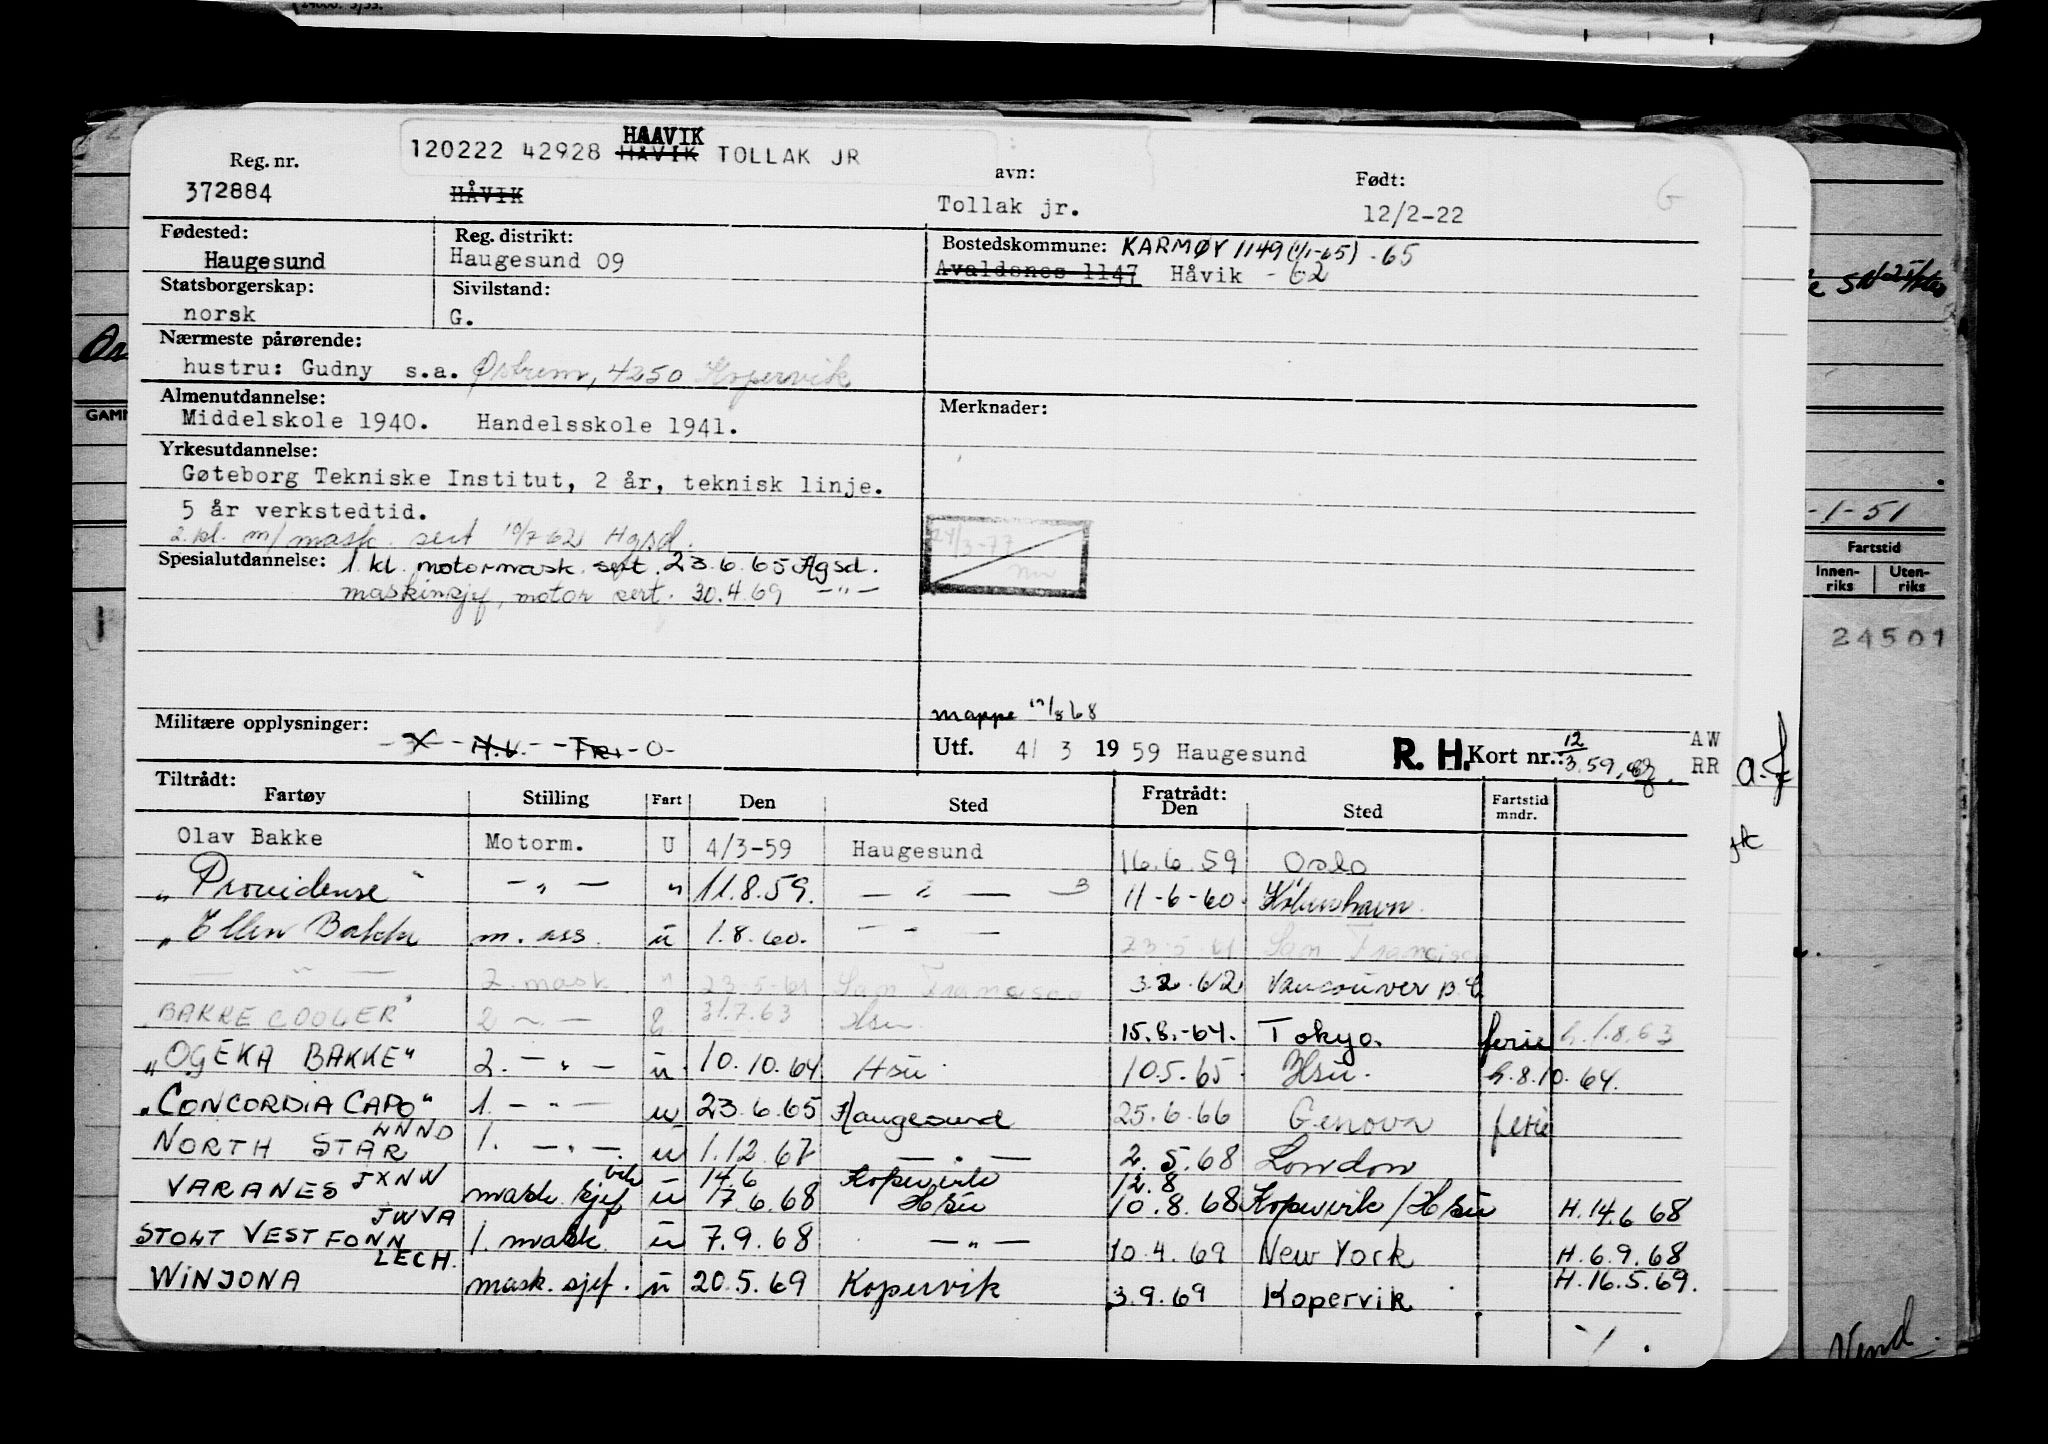 HAAVIK
120222 42928 HAVIK TOLLAK JR
Reg. nr. avn: Født:
372884 HÅVIK Tollak jr. 12/2-22 G
Fødested: Reg. distrikt: Bostedskommune: KARMØY 1149 (1/1-65) -65
Haugesund Haugesund 09 Avaldsnes 1147 Håvik - 62
Statsborgerskap: Sivilstand:
norsk G.
Nærmeste pårørende:
hustru: Gudny s.a. Østrem, 4250 Kopervik
Almenutdannelse: Merknader:
Middelskole 1940. Handelsskole 1941.
Yrkesutdannelse:
Gøteborg Tekniske Institut, 2 år, teknisk linje.
5 år verkstedtid.
2. kl. m/ mask. sert 10/7 62 Hgsd.
24/3-77
Spesialutdannelse: 1. kl. motormask. sert. 23.6.65 Hgsd.
maskinsjef, motor sert. 30.4.69 -"-
mappe /8 68
Militære opplysninger: - X - H.V. - - Fri - O -
Utf. 4/ 3 19 59 Haugesund R. H. Kort nr.: 12/3.59, AW
RR
Tiltrådt: Fratrådt:
Fartøy Stilling Fart Den Sted Den Sted Fartstid mndr.
Olav Bakke Motorm. U 4/3-59 Haugesund 16.6.59 Oslo
"Providense" - " - " 11.8.59. - " - 11-6-60. København.
"Ellen Bakke m. ass. u 1.8.60. - " - 23.5.61 San Francisco
- " - 2. mask. " 23.5.61 San Francisco 3.2.62 Vancouver B.C.
"BAKKE COOLER" 2 - " - 31.7.63 Hsu 15.8.-64. Tokyo. ferie h. 1.8.63
"OGEKA BAKKE" 2. - " - u. 10.10.64. Hsu 10.5.65. Hsu. h. 8.10.64.
"CONCORDIA CAPO" 1. - " - u 23.6.65 Haugesund 25.6.66 Genova ferie
LNND
NORTH STAR 1. - " - u 1.12.67 - " - 2.5.68 London
VARANES JXNW mask. sjef vik u 14.6 Kopervik 12.8
17.6.68 Hsu 10.8.68 Kopervik / Hsu H. 14.6 68
JWVA
STOLT VESTFONN 1. mask. u 7.9.68 - " - 10.4.69 New York H. 6.9.68
LECH.
WINJONA mask. sjef. u 20.5.69 Kopervik 3.9.69 Kopervik H. 16.5.69.
GAMM
-1-51
Fartstid
Innen-riks Uten-riks
24501
Vend